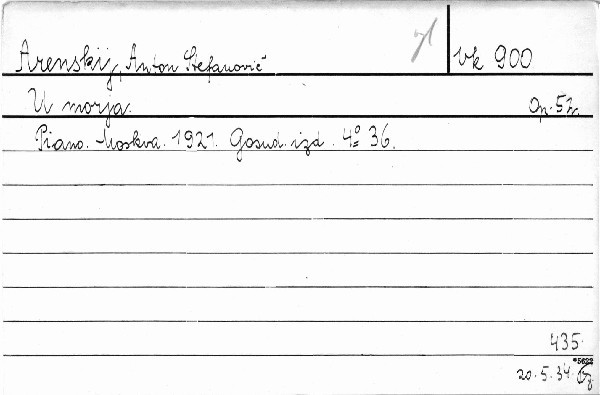 Arenskij, Anton Stefanovič vk 900
U morja. Op. 52.
Piano. Moskva. 1921. Gosud. izd. 4º 36.
435.
*5622
20.5.34.